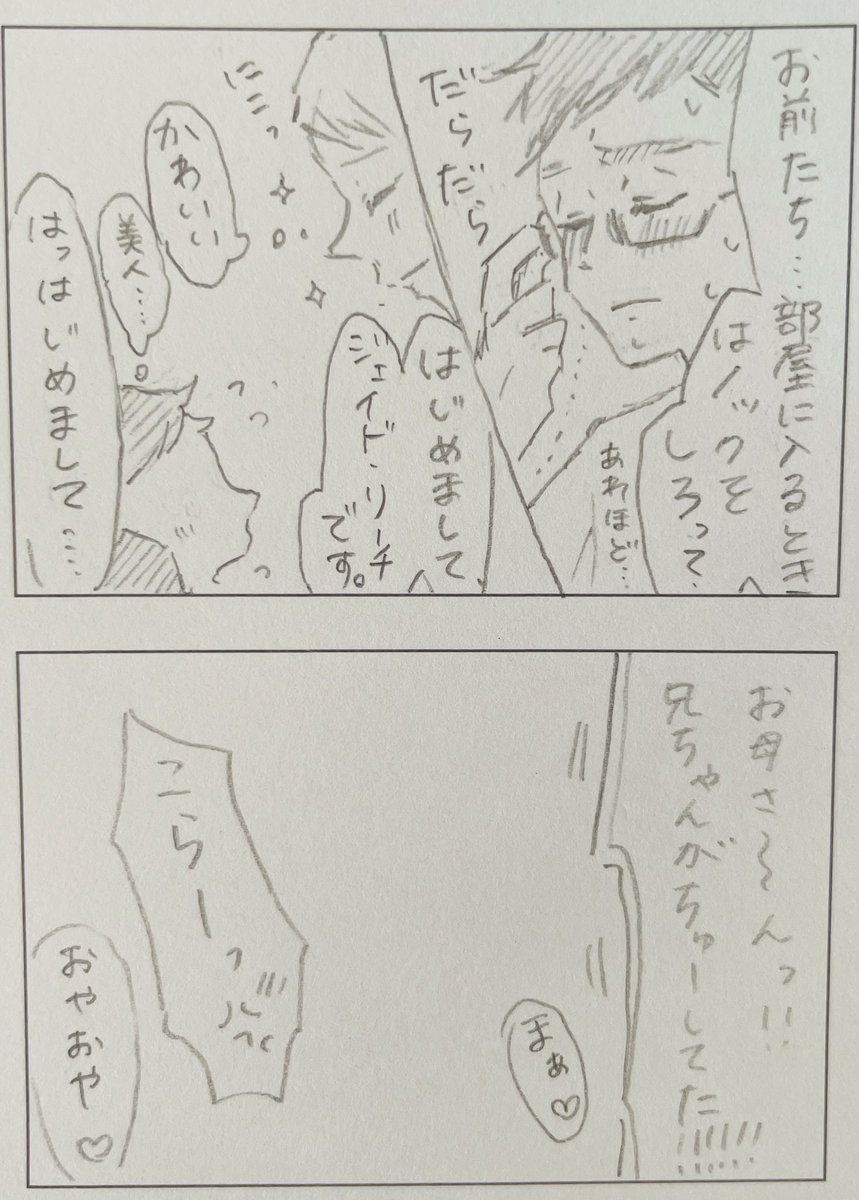 お前たち…部屋に入るとき
はノックを
しろって
あれほど…
だらだら
はじめまして
ジェイド・リーチ
です。
にこっ
かわいい
美人…
はっはじめまして…
お母さ〜〜んっ!!
兄ちゃんがちゅーしてた!!!!!!
まぁ♡
こらーっ
おやおや♡